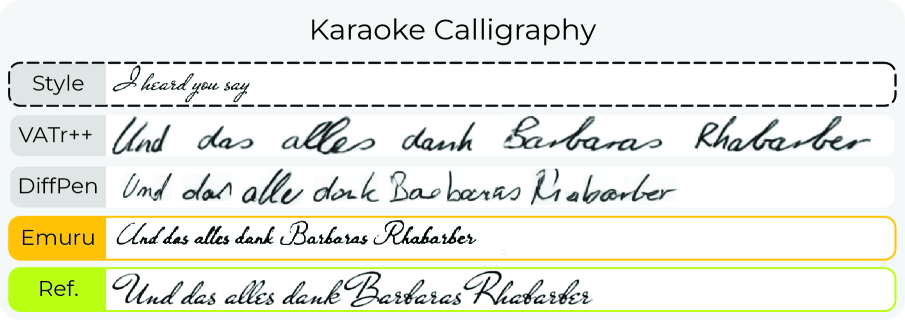 Karaoke Calligraphy
Style I heard you say
VATr++ Und das alles dank Barbaras Rhabarber
DiffPen Und das alle dank Baebaras R'iabarber
Emuru Und das alles dank Barbaras Rhabarber
Ref. Und das alles dank Barbaras Rhabarber